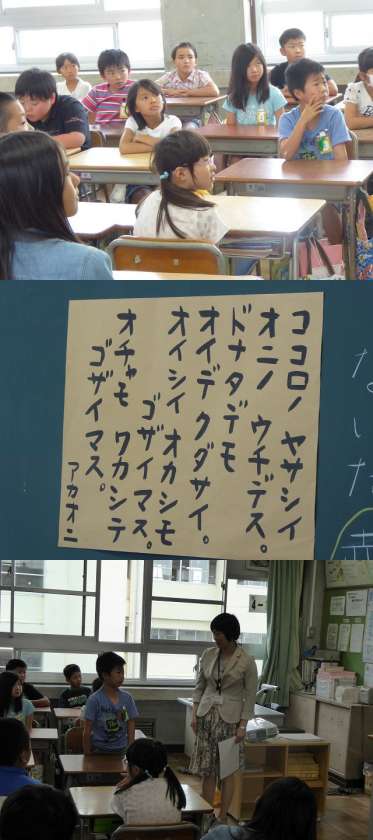 ココロノ ヤサシイ
オニノ ウチデス。
ドナタデモ
オイデクダサイ。
オイシイ オカシモ
ゴザイマス。
オチャモ ワカシテ
ゴザイマス。
アカオニ